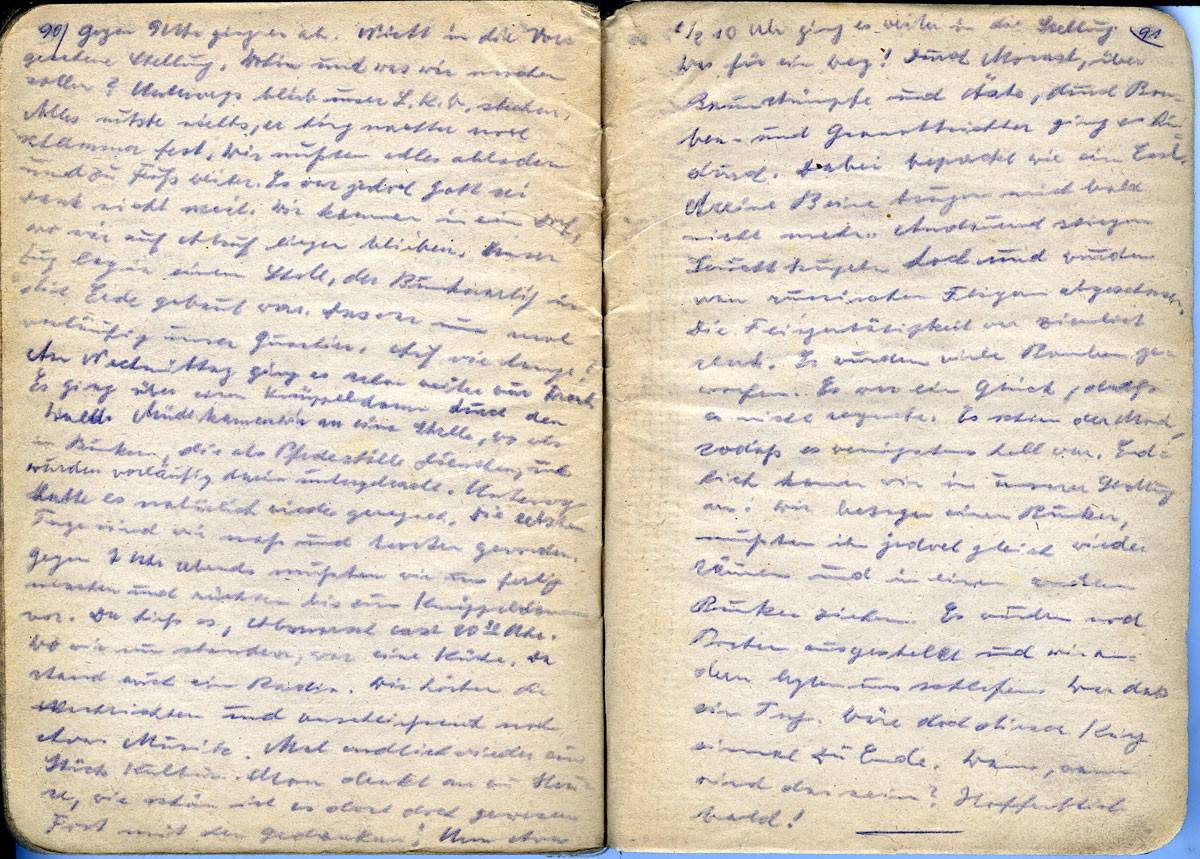 90/ Gegen 9 Uhr ging es ab. Marsch in die Vor-
gesehene Stellung. Wohin und was wir machen
sollen? Unterwegs blieb unser L.K.W. stecken.
Alles nützte nichts, er hing
fest. Wir mußten alles abladen
und zu Fuß weiter. Es war jedoch Gott sei
dank nicht weit. Wir kamen in ein Dorf,
wo wir auf Abruf liegen blieben. Unser
Zug bezog einen Stall, der Bunkerartig in
die Erde gebaut war. Das war nun mal
vorläufig unser Quartier. Auf wie lange?
Am Nachmittag ging es schon weiter zur Front.
Es ging über einen Knüppeldamm durch den
Wald. kamen wir an eine Stelle, wo wir
in Bunkern, die als Pferdeställe dienten, und
wurden vorläufig darin untergebracht. Unterwegs
hatte es natürlich wieder geregnet. Die letzten
Tage sind wir naß und trocken geworden.
Gegen 7 Uhr abends mußten wir uns fertig
machen und rückten bis zum Knüppeldamm
vor. Da hieß es, Abmarsch erst 20 30 Uhr.
Wo wir nun standen, war eine Küche. Da
stand auch ein Radio. Wir hörten die
Nachrichten und anschließend noch
etwas Musik. Mal endlich wieder ein
Stück Kultur. Man denkt an zu Hau-
se, wie schön ist es dort doch gewesen
Fort mit den Gedanken! Um etwa
1/2 10 Uhr ging es weiter in die Stellung. 91
Was für ein Weg! Durch Morast, über
Baumstümpfe und Äste, durch Bom-
ben- und Granattrichter ging es hin-
durch. Dabei bepackt wie ein Esel.
Meine Beine trugen mich bald
nicht mehr. Andauernd stiegen
Leuchtkugeln hoch und wurden
von russischen Fliegern abgeschossen.
Die Fliegertätigkeit war ziemlich
stark. Es wurden viele Bomben ge-
worfen. Es war ein Glück, daß
es nicht regnete. Es schien der Mond,
sodaß es wenigstens hell war. End-
lich kamen wir in unserer Stellung
an. Wir bezogen einen Bunker,
mußten ihn jedoch gleich wieder
räumen und in einen andern
Bunker ziehen. Es wurden noch
Posten ausgestellt und wir an-
dern legten uns schlafen. War das
ein Tag. Wäre doch dieser Krieg
einmal zu Ende. Wann, wann
wird das sein? Hoffentlich
bald!